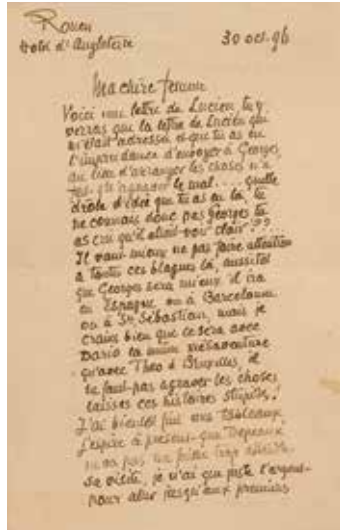 Rouen
Hotel d'Angleterre
30 oct. 96
Ma chère femme
Voici une lettre de Lucien tu y
verras que la lettre de Lucien qui
m'était adressée et que tu as eu
l'imprudence d'envoyer à Georges
au lieu d'arranger les choses n'a
fait qu'agraver le mal.... quelle
drole d'idée que tu as eu là, tu
ne connais donc pas Georges tu
as cru qu'il allait voir clair ???
Il vaut mieux ne pas faire attention
a toutes ces blagues là, aussitot
que Georges sera mieux il ira
en Espagne ou à Barcelonne
ou à St Sébastian, mais je
crains bien que ce sera avec
Dario la même mésaventure
qu'avec Theo à Bruxelles, il
ne faut pas agraver les choses
laisses ces histoires stupides!
J'ai bientot fini mes tableaux
j'espère à present que Depeaux
ne pas me faire trop attendre
sa visite, je n'ai que juste l'argent
pour aller jusqu'aux premiers